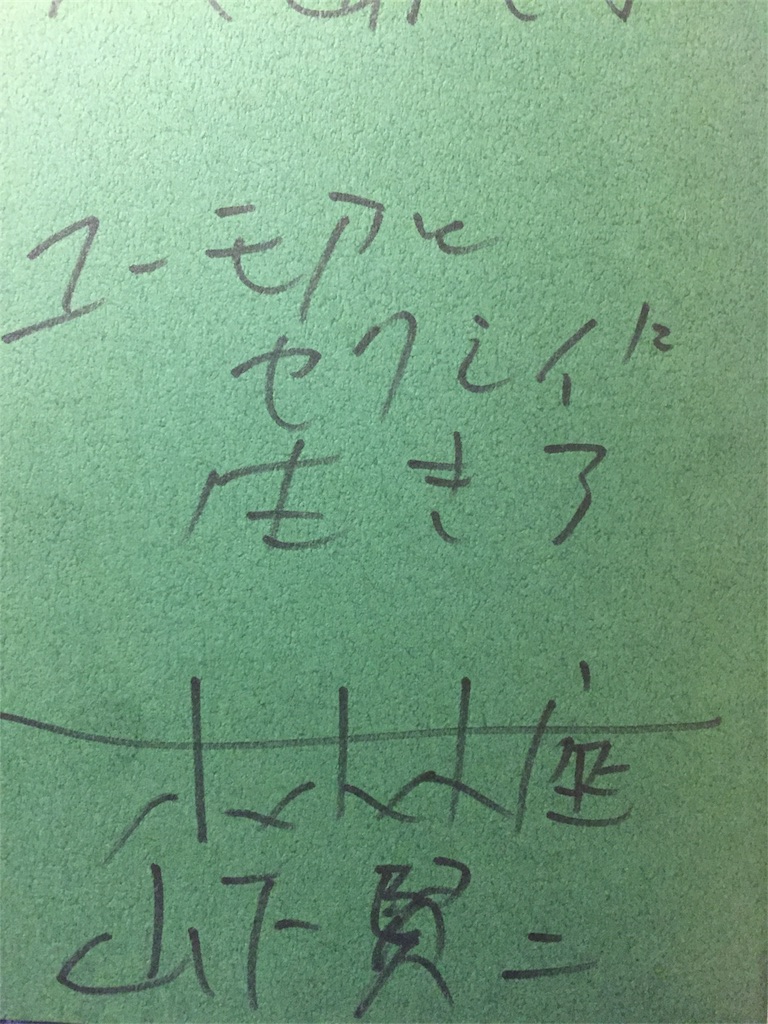 ユーモアと
セクシイに
生きる
ホホホ座
山下賢二